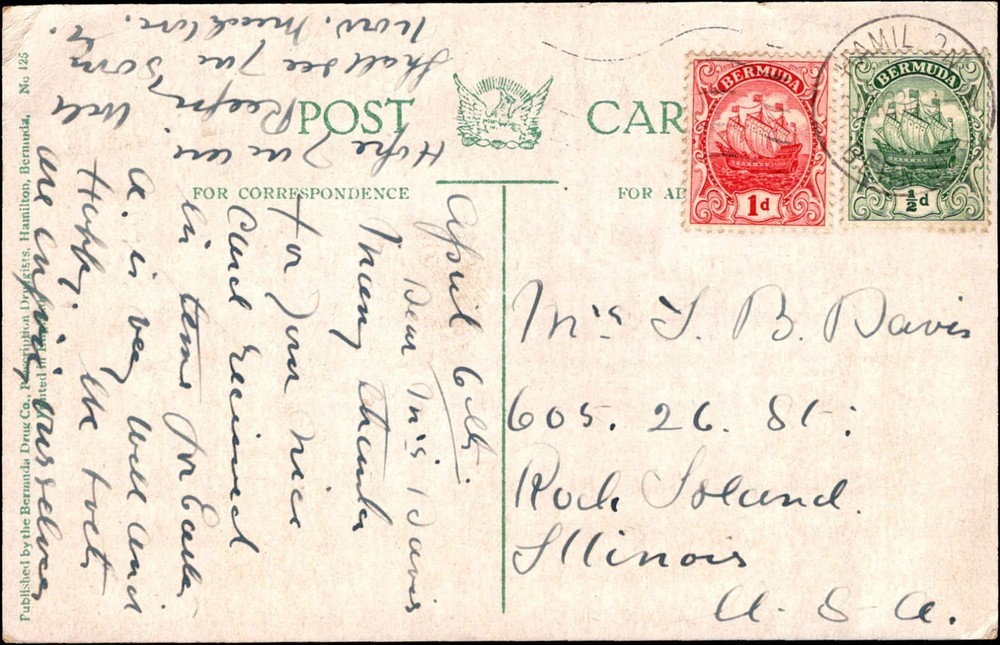 POST CAR
FOR CORRESPONDENCE
FOR AD
BERMUDA
1d
BERMUDA
½d
HAMILTON
Mrs T. B. Davis
605. 26. St:
Rock Island.
Illinois
U. S. A.
April 6th
Dear Mrs Davis
Many thanks
for your nice
Card received
in time for Easter
A. is very well and
Happy. We both
are enjoying ourselves
Hope you are
Keeping well
Shall see you soon
now.
Published by the Bermuda Drug Co., Prescription Druggists, Hamilton, Bermuda. No 125
Printed in